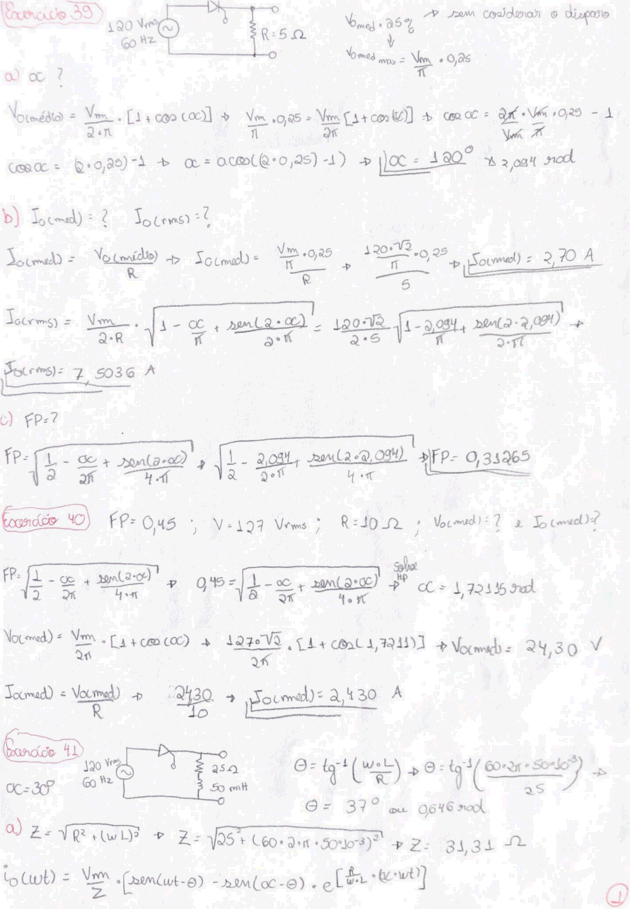 Exercício 39
120 Vrms
60 Hz
R = 5 Ω
Vomed = 25%
→ sem cosiderar o disparo
Vomed max = Vm/π · 0,25
a) α ?
Vo(médio) = Vm/2·π · [1+cos(α)] → Vm/π · 0,25 = Vm/2π [1+cos(α)] → cos α = 2π/Vm · Vm/π · 0,25 - 1
cos α = (2·0,25)-1 → α = acos(2·0,25)-1) → α = 120° 2,094 rad
b) Io(med) = ? Io(rms) = ?
Io(med) = Vo(médio)/R → Io(med) = Vm/π · 0,25 / R → 120·√2/π · 0,25 / 5 → Io(med) = 2,70 A
Io(rms) = Vm/2·R · √1 - α/π + sen(2·α)/2·π = 120·√2/2·5 √1 - 2,094/π + sen(2·2,094)/2·π →
Io(rms) = 7,5036 A
c) FP=?
FP = √1/2 - α/2π + sen(2·α)/4·π → √1/2 - 2,094/2π + sen(2·2,094)/4·π → FP = 0,31265
Exercício 40
FP = 0,45 ; V = 127 Vrms ; R = 10 Ω ; Vo(med) = ? e Io(med) = ?
FP = √1/2 - α/2π + sen(2·α)/4·π → 0,45 = √1/2 - α/2π + sen(2·α)/4·π → Solve HP α = 1,72115 rad
Vo(med) = Vm/2π · [1+cos(α) → 127·√2/2π · [1 + cos(1,7211)] → Vo(med) = 24,30 V
Io(med) = Vo(med)/R → 24,30/10 → Io(med) = 2,430 A
Exercício 41
α = 30°
120 Vrms
60 Hz
25 Ω
50 mH
θ = tg⁻¹(w·L/R) → θ = tg⁻¹(60·2π·50·10⁻³/25) →
θ = 37° ou 0,646 rad
a) Z = √R² + (wL)² → Z = √25² + (60·2·π·50·10⁻³)² → Z = 31,31 Ω
io(wt) = Vm/Z · [sen(wt-θ) - sen(α-θ) · e^[R/w·L · (α-wt)]
1